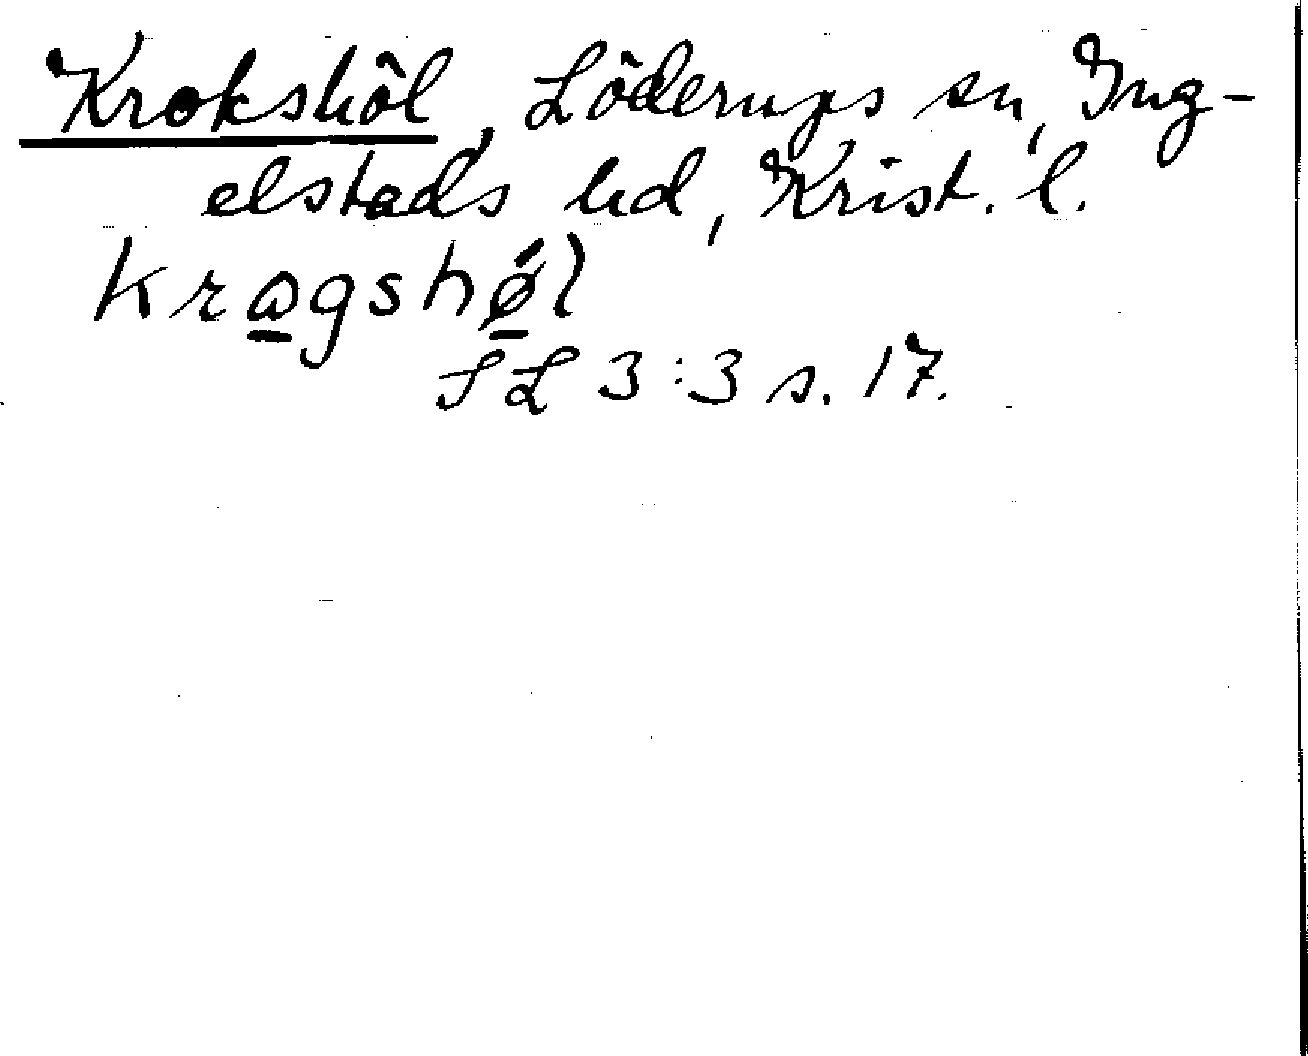 Krokshöl, Löderups sn, Ing-
elstads hd, Krist. l.
kra̲gshǿ̲l
SL 3:3 s. 17.